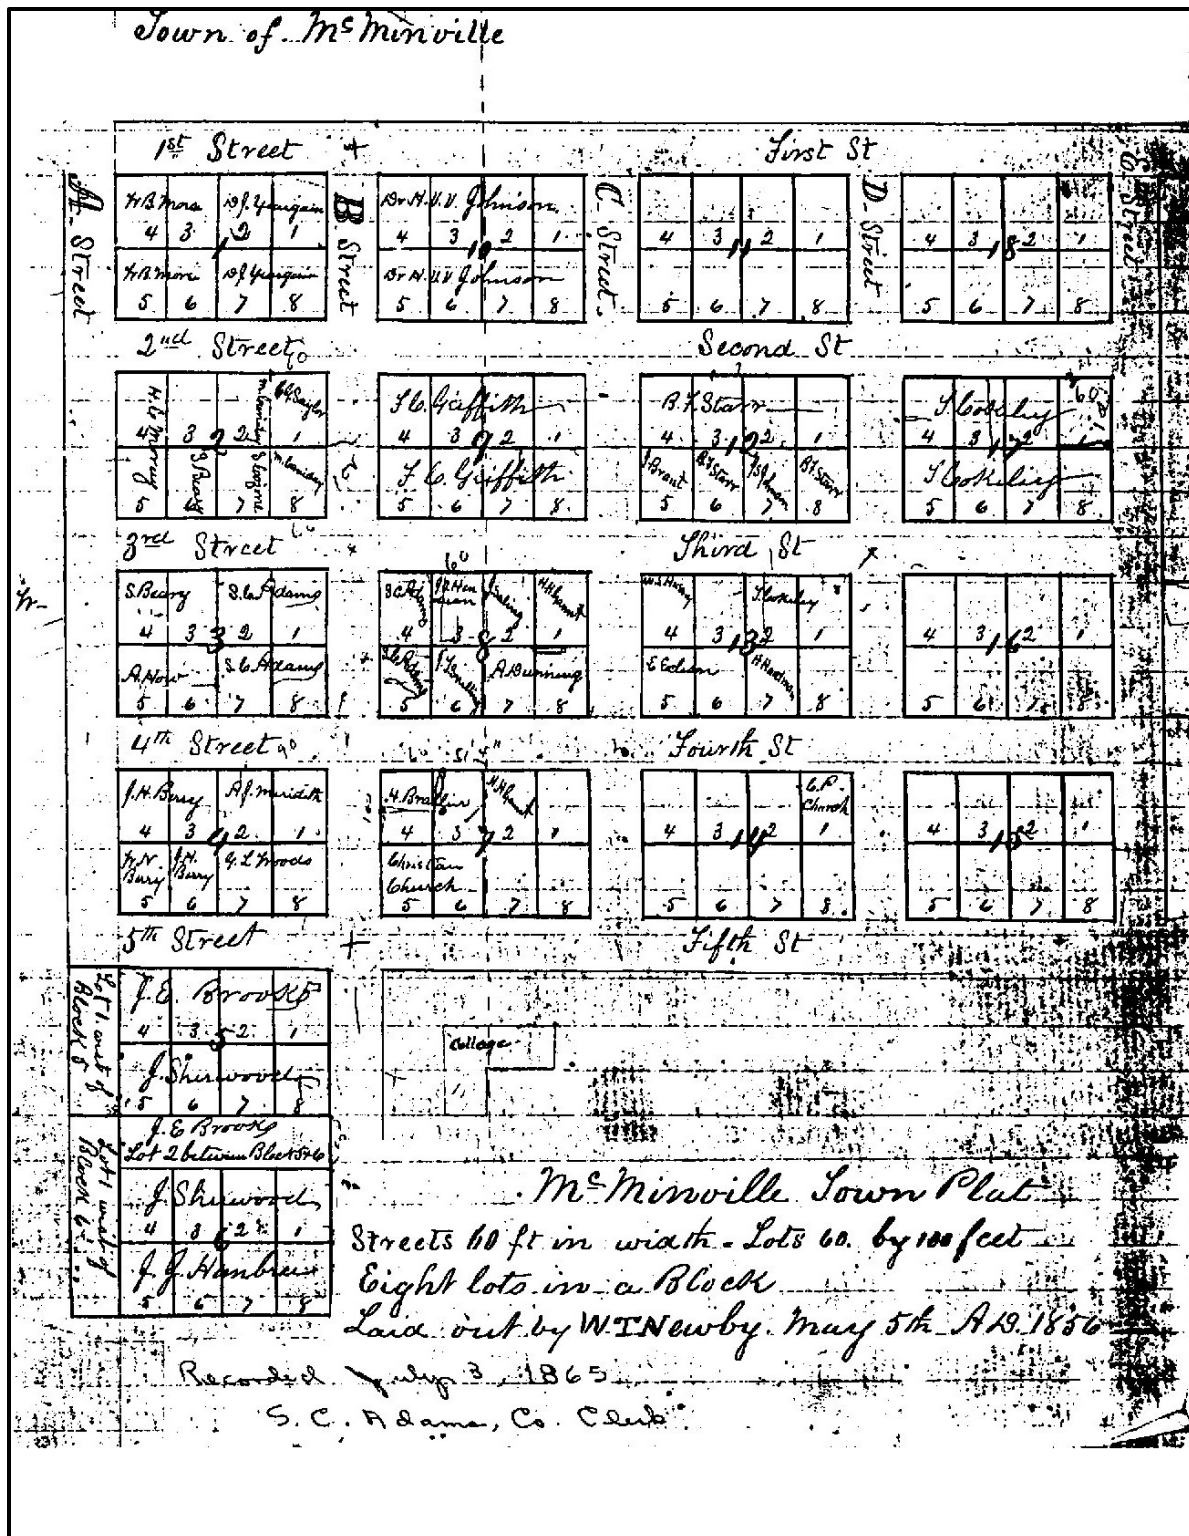 Town of McMinville
1st Street
First St
A Street
B Street
C Street
D Street
E Street
W.B. More D.J. Yeargain
4 3 2 1
1
W.B. More D.J. Yeargain
5 6 7 8
Dr H.V.V. Johnson
4 3 2 1
10
Dr H.V.V. Johnson
5 6 7 8
4 3 2 1
11
5 6 7 8
4 3 2 1
18
5 6 7 8
2nd Street
Second St
4 3 2 1
2
5 6 7 8
S.C. Griffith
4 3 2 1
9
S.C. Griffith
5 6 7 8
B.F. Starr
4 3 2 1
12
J. Brant B.F. Starr J.S. Johnson B.F. Starr
5 6 7 8
4 3 2 1
17
5 6 7 8
3rd Street
Third St
S. Beary S.C. Adams
4 3 2 1
3
A. How S.C. Adams
5 6 7 8
S.C. Adams
4 3 2 1
8
S.C. Adams A. Dunning
5 6 7 8
4 3 2 1
13
E Edson
5 6 7 8
4 3 2 1
16
5 6 7 8
4th Street
Fourth St
J.H. Berry A.J. Meridith
4 3 2 1
4
W.N. Barry J.H. Berry G.L. Woods
5 6 7 8
4 3 2 1
7
Christian
Church
5 6 7 8
C.P.
Church
4 3 2 1
14
5 6 7 8
4 3 2 1
15
5 6 7 8
5th Street
Fifth St
Lot 1 west of
Block 5
J.E. Brooks
4 3 2 1
5
J. Sherwood
5 6 7 8
Collage
J.E. Brooks
Lot 2 between Block 5 & 6
Lot 1 west of
Block 6
J. Sherwood
4 3 2 1
6
J.J. Hembree
5 6 7 8
McMinville Town Plat
Streets 60 ft in width - Lots 60. by 100 feet
Eight lots in a Block
Laid out by W.T Newby. May 5th A.D. 1856
Recorded July 3, 1865
S. C. Adams, Co. Clerk